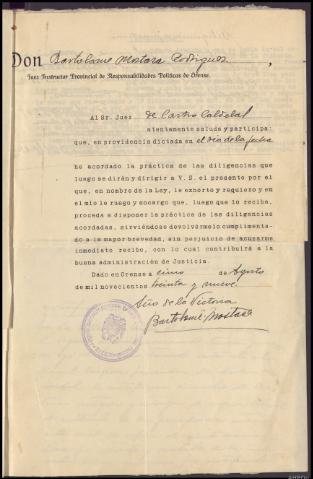 Don Bartolomé Mostaza Rodriguez,
Juez Instructor Provincial de Responsabilidades Políticas de Orense.
Al Sr. Juez de Castro Caldelas
atentamente saluda y participa:
que, en providencia dictada en el día de la fecha
he acordado la práctica de las diligencias que
luego se dirán y dirigir a V. S. el presente por el
que, en nombre de la Ley, le exhorto y requiero y en
el mío le ruego y encargo que, luego que lo reciba,
proceda a disponer la práctica de las diligencias
acordadas, sirviéndose devolvérmelo cumplimenta-
do a la mayor brevedad, sin perjuicio de acusarme
inmediato recibo, con lo cual contribuirá a
la buena administración de Justicia.
Dado en Orense a cinco de Agosto
de mil novecientos treinta y nueve.
Año de la Victoria
Bartolomé Mostaza